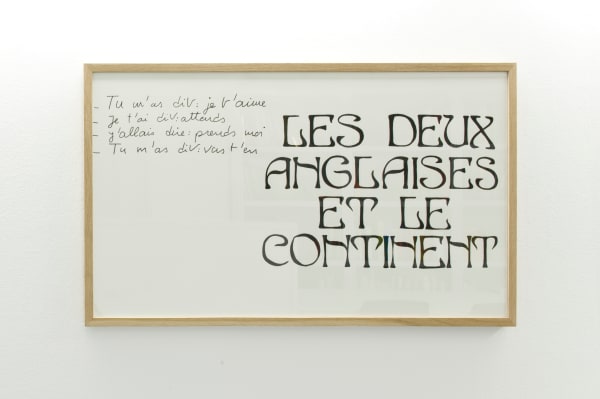 – Tu m'as dit: je t'aime
– Je t'ai dit: attends
– j'allais dire: prends moi
– Tu m'as dit: vas t'en
LES DEUX
ANGLAISES
ET LE
CONTINENT